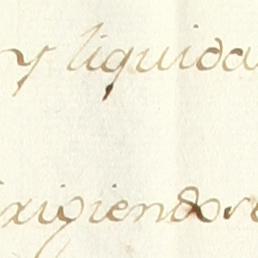 y liquida
exigiendose